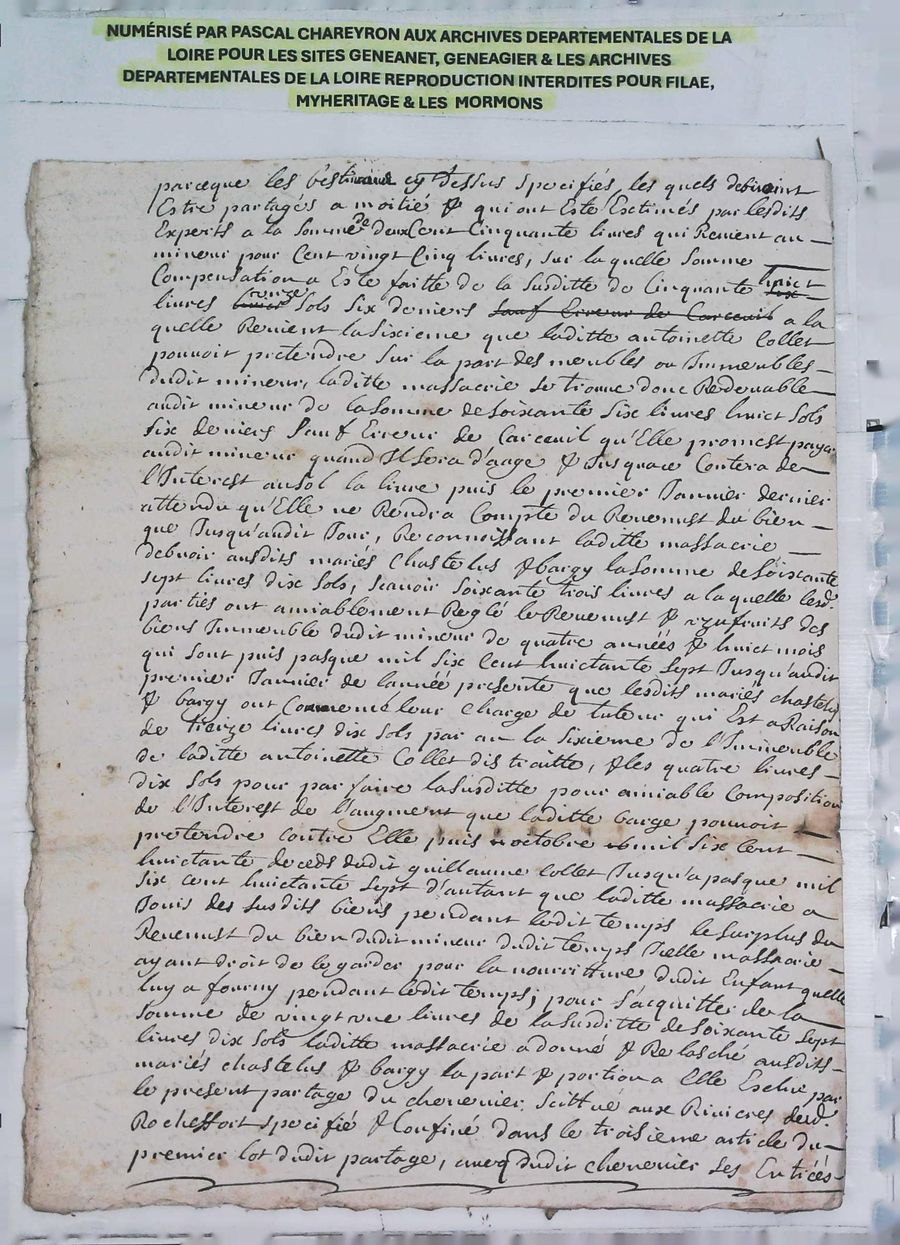 NUMÉRISÉ PAR PASCAL CHAREYRON AUX ARCHIVES DEPARTEMENTALES DE LA
LOIRE POUR LES SITES GENEANET, GENEAGIER & LES ARCHIVES
DEPARTEMENTALES DE LA LOIRE REPRODUCTION INTERDITES POUR FILAE,
MYHERITAGE & LES MORMONS
parceque les bestiaux cy dessus specifiés, les quels debvoint
Estre partagés a moitie & qui ont Esté Extimés par lesdits
Experts a la somme de deux Cent Cinquante livres qui Revient au
mineur pour Cent vingt Cinq livres, sur la quelle somme
Compensation a Esté faitte de la susditte de Cinquante huict
livres onze sols six deniers sauf Erreur de Carceuil a la
quelle Revient la sixieme que laditte antoinette Collet
pouvoit pretendre sur la part des meubles ou Immeubles
dudit mineur, laditte massacrie se trouve donc Redevable
audit mineur de la somme de soixante six livres huict sols
six deniers sauf Erreur de Carceuil qu'Elle promest payer
audit mineur quand Il sera d'aage & Jusqu'a ce Contera de
l'Interest au sol la livre puis le premier Janvier dernier
attendu qu'Elle ne Rendra Compte du Revenust du bien
que Jusqu'audit Jour, Reconnoissant laditte massacrie
debvoir ausdits mariés Chastelus & bargy la somme de soixante
sept livres dix sols, scavoir soixante trois livres a laquelle lesd.
parties ont amiablement Reglé le Revenust & des
biens Immeuble dudit mineur de quatre années & huict mois
qui sont puis pasque mil six Cent huictante sept Jusqu'audit
premier Janvier de lannée presente que lesdits mariés chastelus
& bargy ont Commencé leur charge de tuteur qui Est a Raison
de treize livres dix sols par an la sixieme de l'Immeuble
de laditte antoinette Collet distraitte, & les quatre livres
dix sols pour parfaire la susditte pour amiable Composition
de l'Interest de l'augment que laditte barge pouvoit
pretendre contre Elle puis octobre mil six Cent
huictante deceds dudit guillaume Collet Jusqu'a pasque mil
six cent huictante sept d'autant que laditte massacrie a
Jouis des susdits biens pendant ledit temps le surplus du
Revenust du bien dudit mineur dudit temps Icelle massacrie
ayant droit de le garder pour la nourriture dudit Enfant quelle
luy a fourny pendant ledit temps; pour s'acquitter de la
somme de vingt une livres de la susditte de soixante sept
livres dix sols laditte massacrie a donné & Relasché ausdits
mariés chastelus & bargy la part & portion a Elle Escheu par
le present partage du chenevier scittué aux Rivieres dud.
Rocheffort specifié & Confiné dans le troisieme article du
premier lot dudit partage, avecq dudit chenevier ses Entrées